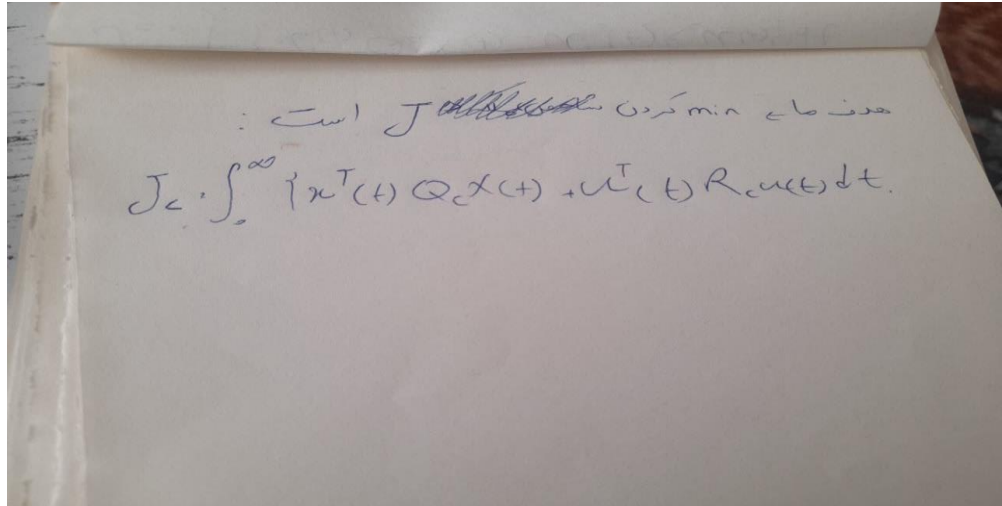 هدف ما min کردن J است :
J_c = ∫_0^∞ {x^T(t) Q_c x(t) + u^T(t) R_c u(t) dt.